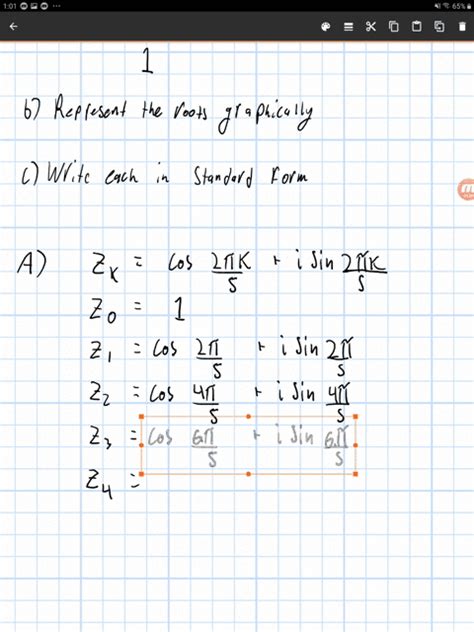 1:01 ... 65%
1
b) Represent the roots graphically
c) Write each in Standard Form
A) Z_K = cos 2πK/5 + i Sin 2πK/5
Z_0 = 1
Z_1 = cos 2π/5 + i Sin 2π/5
Z_2 = cos 4π/5 + i Sin 4π/5
Z_3 = cos 6π/5 + i Sin 6π/5
Z_4 =